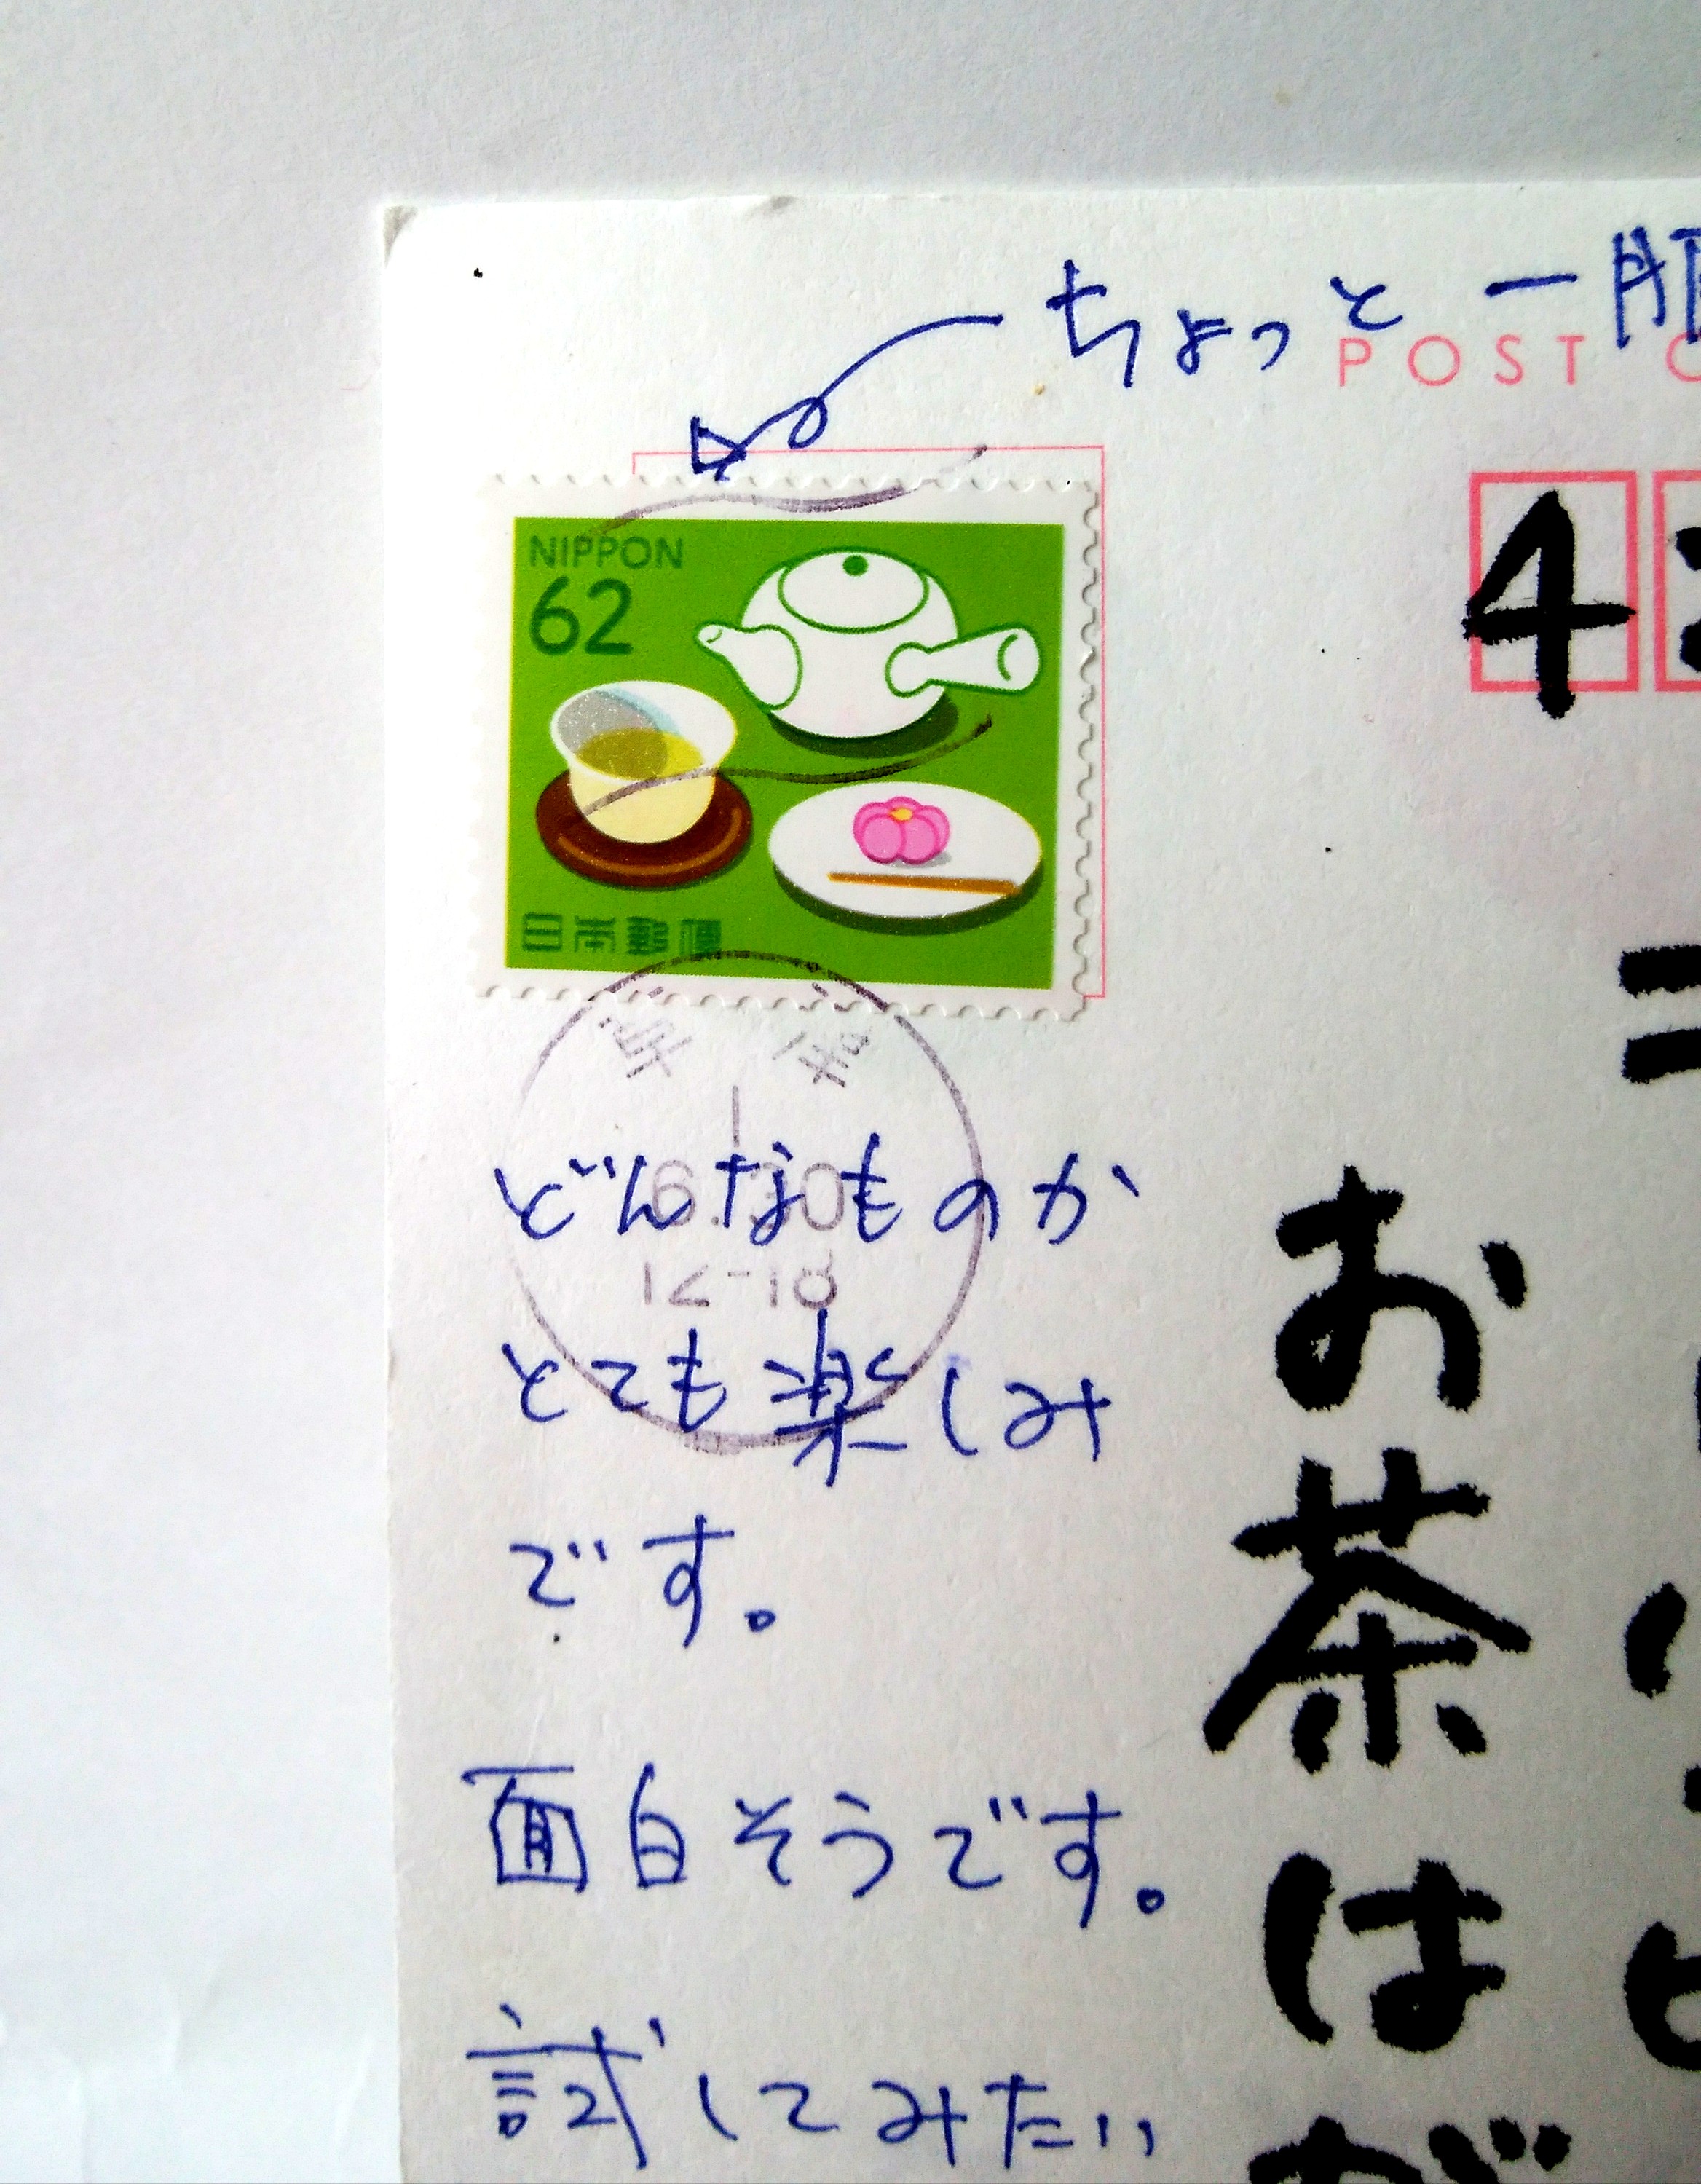 ちょっと一服
POST
4
NIPPON
62
日本郵便
12-18
どんなものか
とても楽しみ
です。
面白そうです。
試してみたい
お茶は